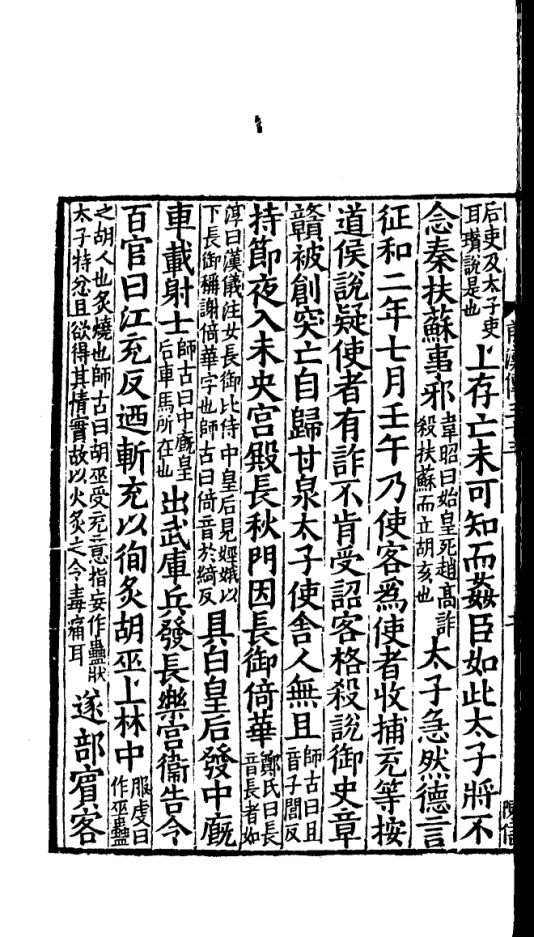 后吏及太子吏耳瓚說是也上存亡未可知而姦臣如此太子將不
念秦扶蘇事邪韋昭曰始皇死趙高詐殺扶蘇而立胡亥也太子急然德言
征和二年七月壬午乃使客爲使者收捕充等按
道侯說疑使者有詐不肯受詔客格殺說御史章
贛被創突亡自歸甘泉太子使舍人無且師古曰且音子閭反
持節夜入未央宮殿長秋門因長御倚華鄭氏曰長音長者如
淳曰漢儀注女長御比侍中皇后見娙娥以下長御稱謝倚華字也師古曰倚音於綺反具白皇后發中廐
車載射士師古曰中廐皇后車馬所在也出武庫兵發長樂宮衞告令
百官曰江充反迺斬充以徇炙胡巫上林中服虔曰作巫蠱
之胡人也炙燒也師古曰胡巫受充意指妄作蠱狀太子特忿且欲得其情實故以火炙之令毒痛耳遂部賓客